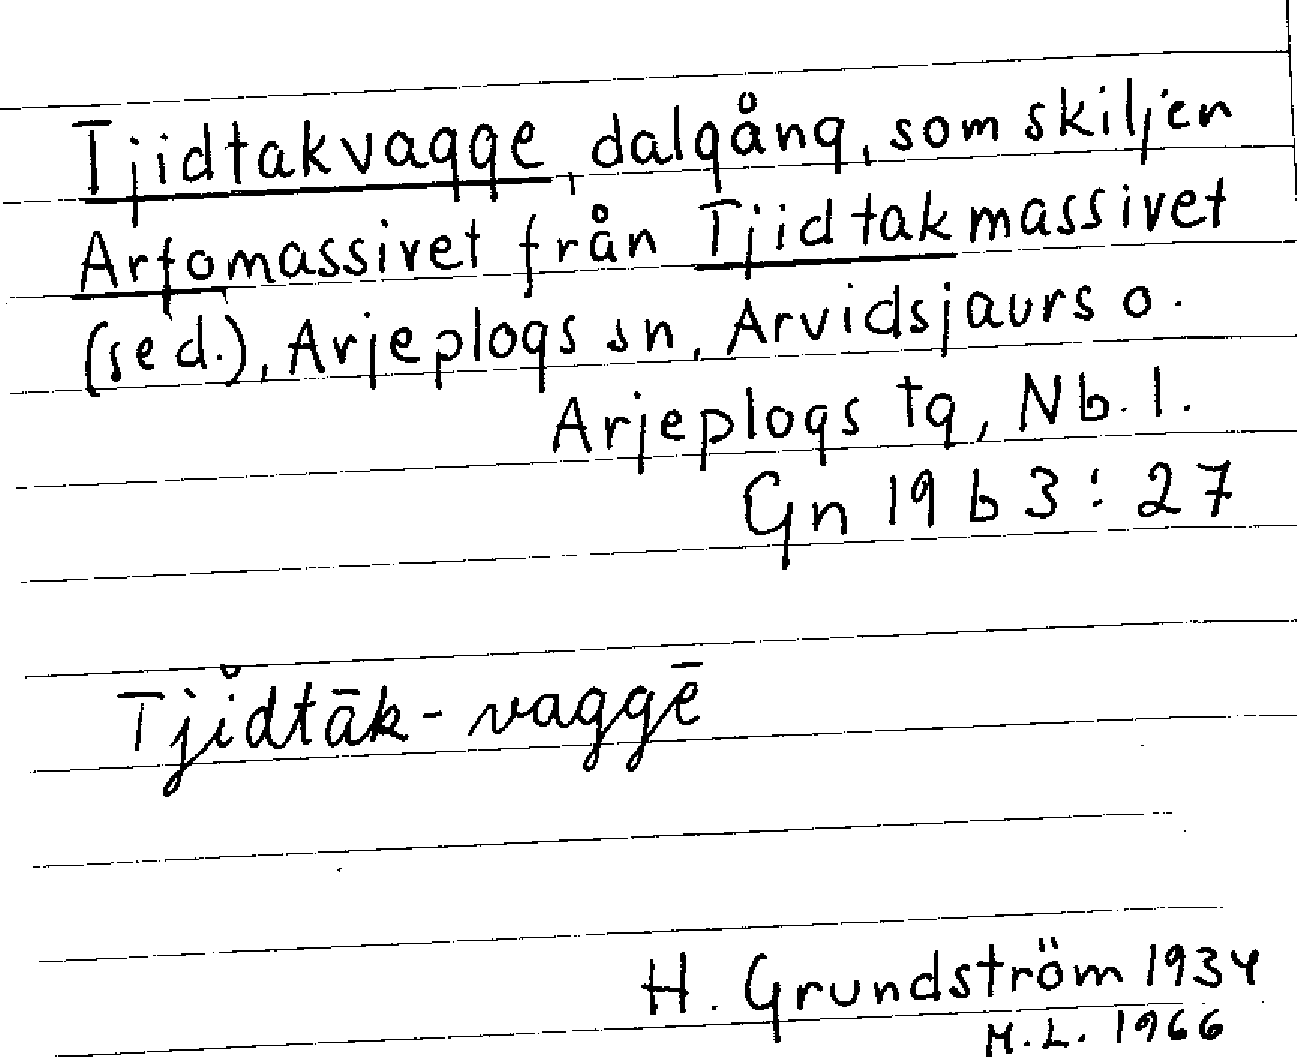 Tjidtakvagge, dalgång, som skiljer
Artomassivet från Tjidtakmassivet
(se d.), Arjeplogs sn, Arvidsjaurs o.
Arjeplogs tg, Nb. l.
Gn 19 b 3 : 27
Tji̊dtāk-vaggē
H. Grundström 1934
H.L. 1966